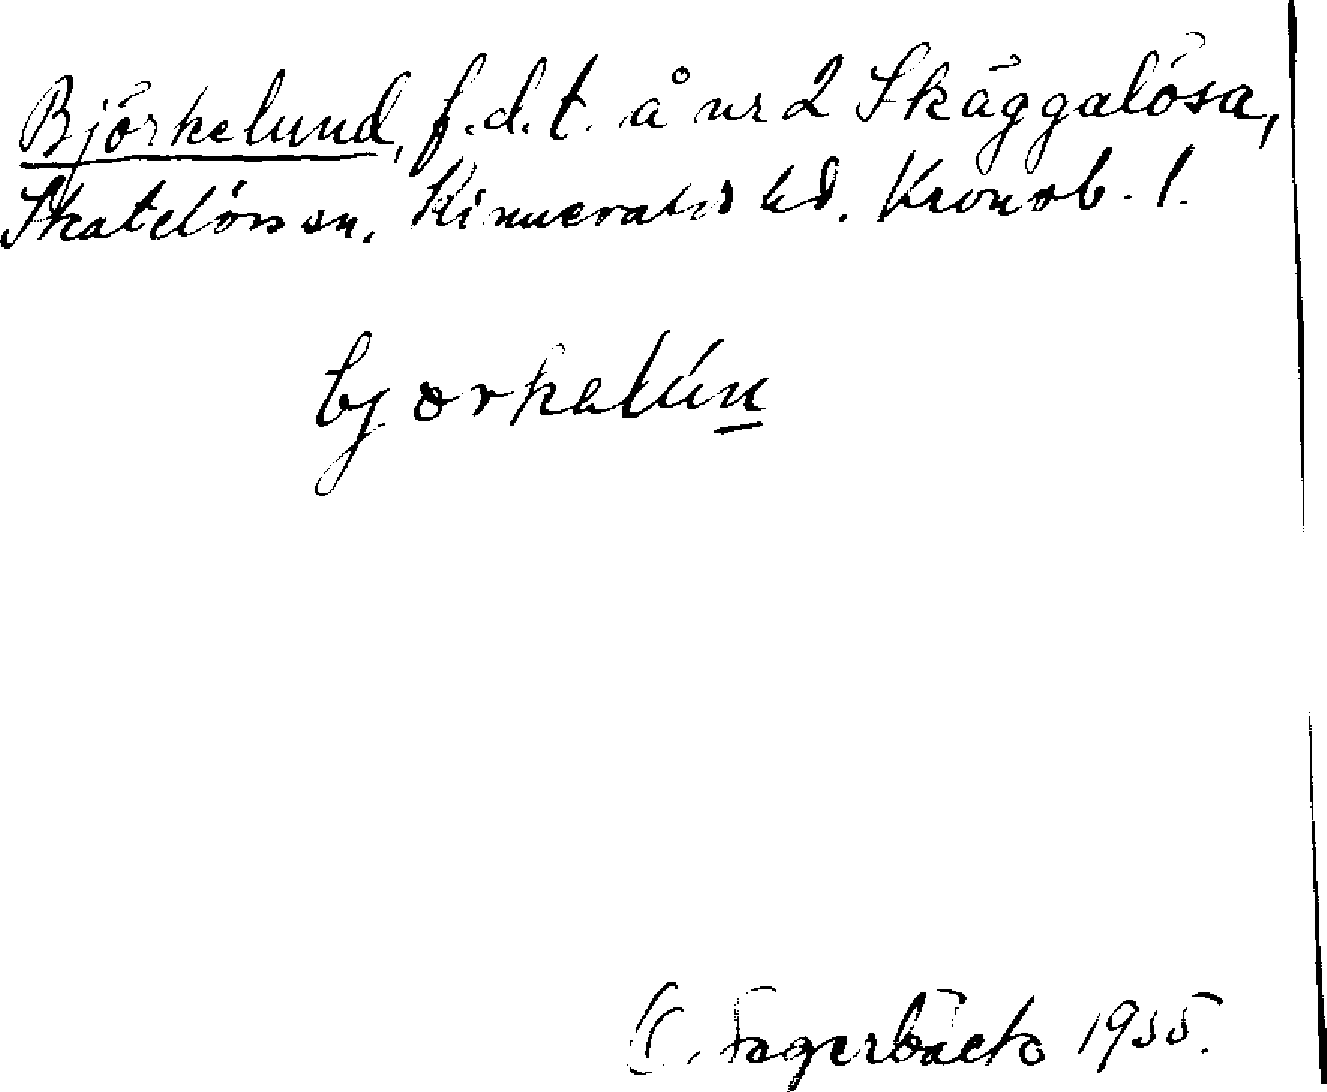 Björkelund, f.d.t. å nr 2 Skäggalösa,
Skatelövs sn. Kinnevalds hd. Kronob. l.
bjorkalún
Fagerbäck 1955.